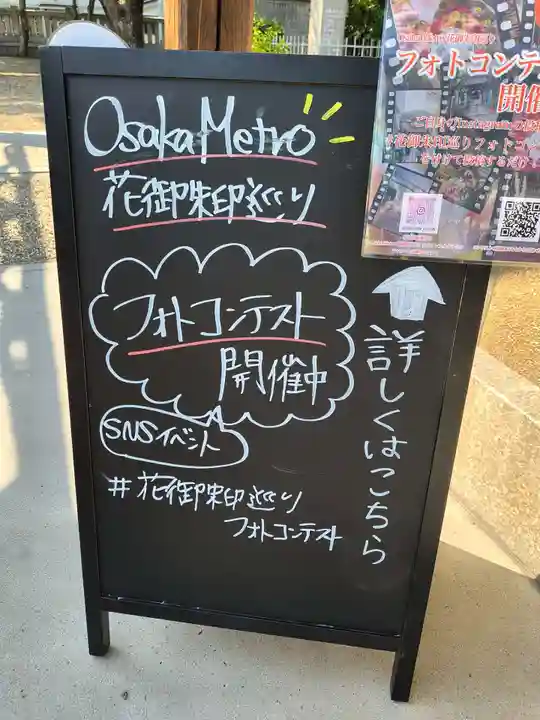 Osaka Metro
花御朱印巡り
フォトコンテスト
開催中
SNSイベント
#花御朱印巡り
フォトコンテスト
詳しくはこちら
フォトコンテ
開催
ご自身のInstagram
#花御朱印巡りフォトコ
を付けて投稿するだけ